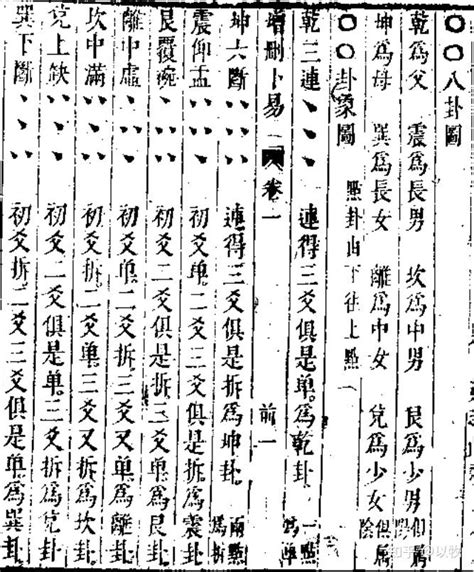 ○○八卦圖
乾爲父 震爲長男 坎爲中男 艮爲少男俱屬陽
坤爲母 巽爲長女 離爲中女 兌爲少女俱屬陰
○○卦象圖 點卦由下往上點
乾三連 連得三爻俱是單爲乾卦 一點爲單
增刪卜易 卷一 前一
坤六斷 連得三爻俱是拆爲坤卦 兩點爲拆
震仰盂 初爻單二爻三爻俱是拆爲震卦
艮覆碗 初爻二爻俱是拆三爻單爲艮卦
離中虛 初爻單二爻拆三爻又單爲離卦
坎中滿 初爻拆二爻單三爻又拆爲坎卦
兌上缺 初爻二爻俱是單三爻拆爲兌卦
巽下斷 初爻拆二爻三爻俱是單爲巽卦